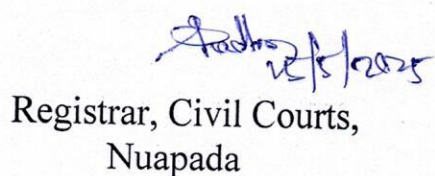 15/5/2025
Registrar, Civil Courts,
Nuapada